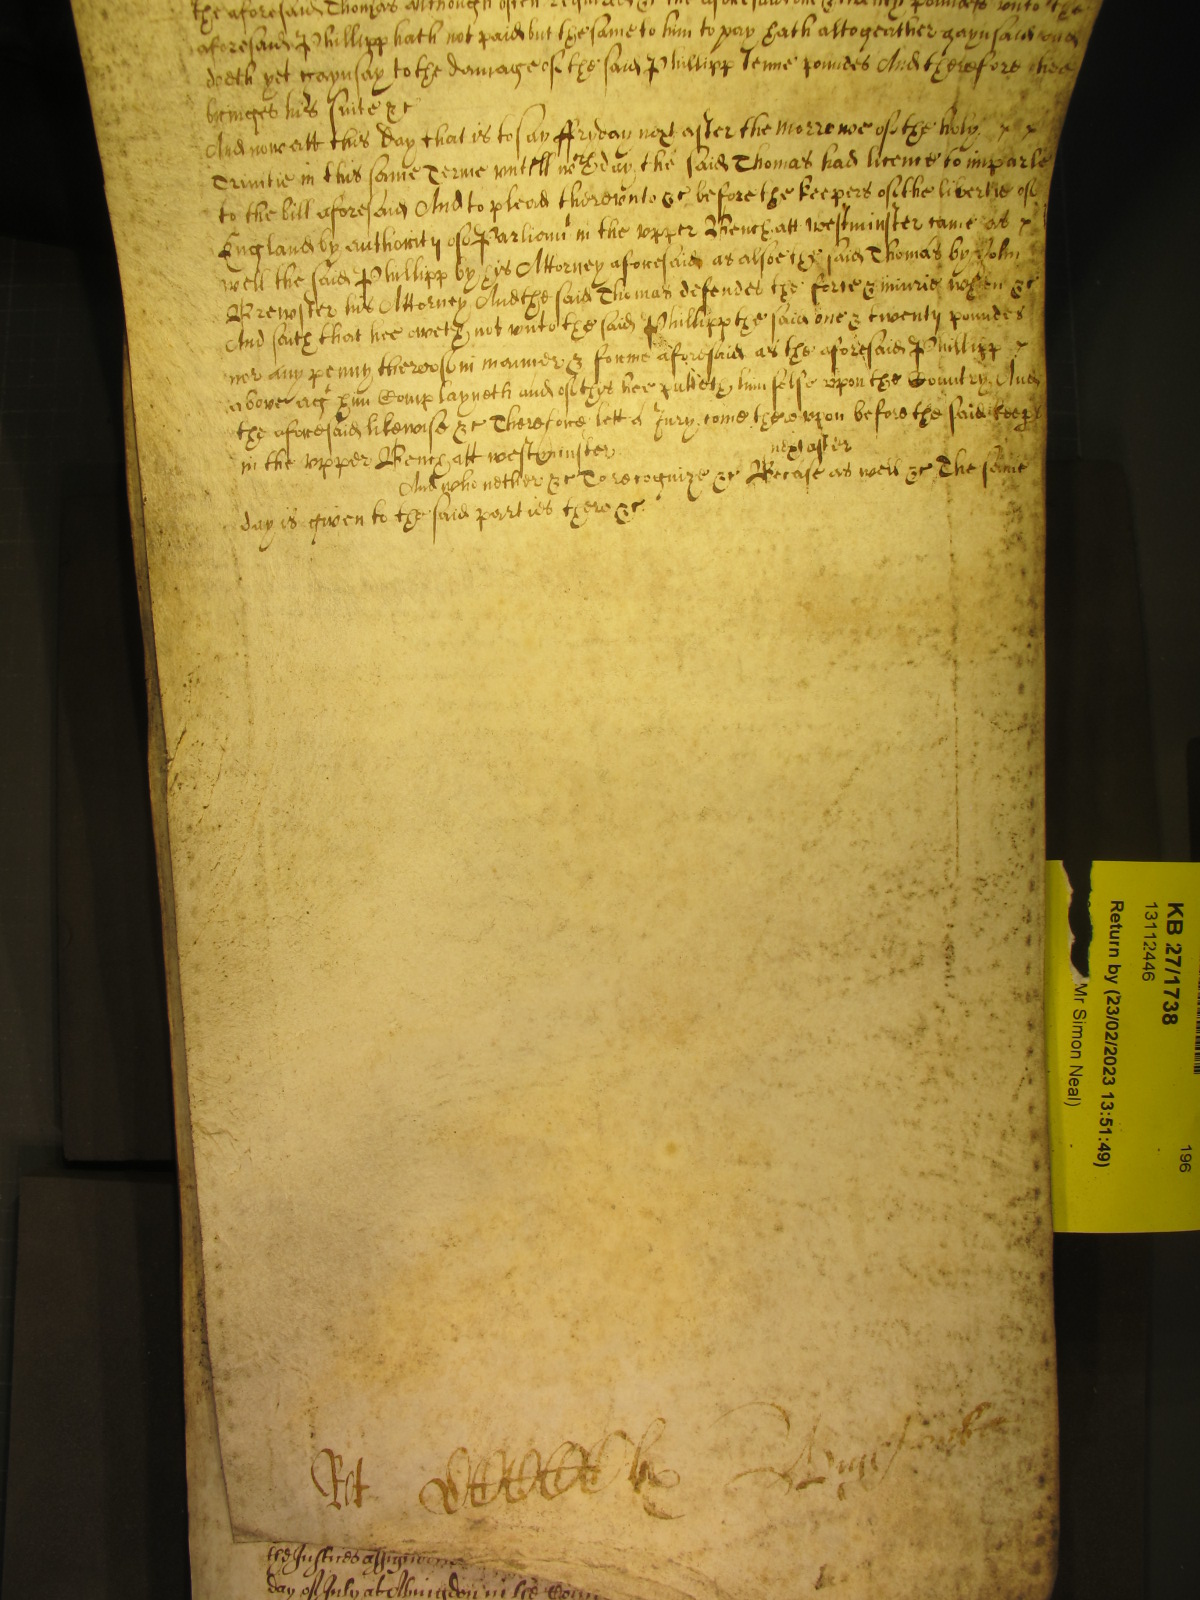 the aforesaid Thomas although often required the aforesaid one & twenty poundes unto the
aforesaid Phillipp hath not paid but the same to him to pay hath altogeather gaynsaid and
doeth yet gaynsay to the damage of the said Phillipp Tenne poundes And therefore hee
bringes his suite &c
And now att this day that is to say ffryday next after the morrowe of the holy
Trinitie in this same Terme untill wch day the said Thomas had licence to imparle
to the bill aforesaid And to plead thereunto &c before the keepers of the libertie of
England by authority of Parliamt in the upper Bench att Westminster came as
well the said Phillipp by his Attorney aforesaid as alsoe the said Thomas by John
Brewster his Attorney And the said Thomas defendes the force & iniurie when &c
And saith that hee oweth not unto the said Phillipp the said one & twenty poundes
nor any penny thereof in manner & forme aforesaid as the aforesaid Phillipp
above agt him Complayneth and of this hee putteth himselfe upon the Country And
the aforesaid likewise &c Therefore lett a Jury come thereupon before the said keeps
in the upper Bench att westminster next after
And who nether &c To recognize &c Becase as well &c The same
day is given to the said parties there &c
Rot
the Justices assigned
day of July at Abingdon in the Coun
KB 27/1738
13112446
Return by (23/02/2023 13:51:49)
Mr Simon Neal)
196